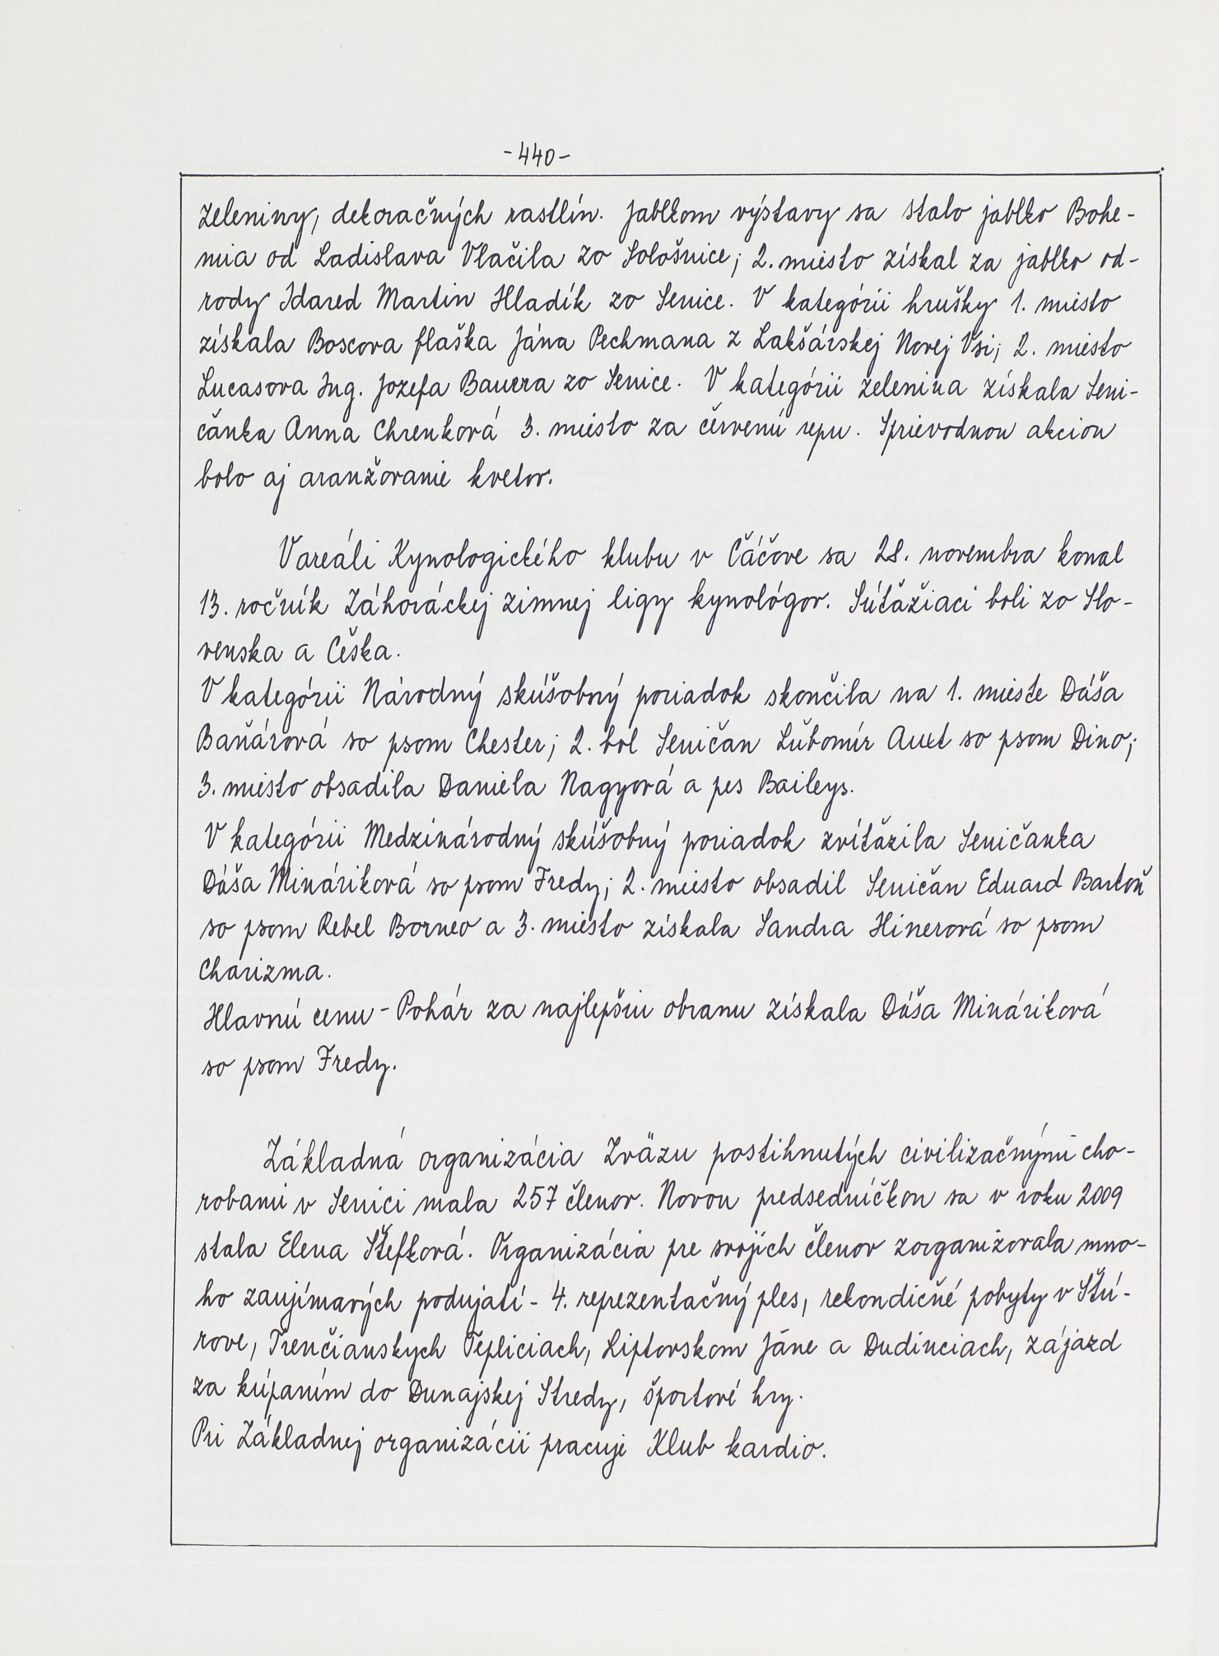 -440-
zeleniny, dekoračných rastlín. Jablkom výstavy sa stalo jablko Bohe-
mia od Ladislava Vlačila zo Sološnice; 2. miesto získal za jablko od-
rody Idared Martin Hladík zo Senice. V kategórii hrušky 1. miesto
získala Boscova flaška Jána Pechmana z Lakšárskej Novej Vsi; 2. miesto
Lucasova Ing. Jozefa Bauera zo Senice. V kategórii zelenina získala Seni-
čanka Anna Chrenková 3. miesto za červenú repu. Sprievodnou akciou
bolo aj aranžovanie kvetov.
V areáli Kynologického klubu v Čáčove sa 28. novembra konal
13. ročník Záhoráckej zimnej ligy kynológov. Súťažiaci boli zo Slo-
venska a Češka.
V kategórii Národný skúšobný poriadok skončila na 1. mieste Dáša
Baňárová so psom Chester; 2. bol Seničan Ľubomír Auxt so psom Dino;
3. miesto obsadila Daniela Nagyová a pes Baileys.
V kategórii Medzinárodný skúšobný poriadok zvíťazila Seničanka
Dáša Mináriková so psom Fredy; 2. miesto obsadil Seničan Eduard Bartoň
so psom Rebel Borneo a 3. miesto získala Sandra Hinerová so psom
Charizma.
Hlavnú cenu - Pohár za najlepšiu obranu získala Dáša Mináriková
so psom Fredy.
Základná organizácia Zväzu postihnutých civilizačnými cho-
robami v Senici mala 257 členov. Novou predsedníčkou sa v roku 2009
stala Elena Štefková. Organizácia pre svojich členov zorganizovala mno-
ho zaujímavých podujatí - 4. reprezentačný ples, rekondičné pobyty v Štú-
rove, Trenčianskych Tepliciach, Liptovskom Jáne a Dudinciach, zájazd
za kúpaním do Dunajskej Stredy, športové hry.
Pri Základnej organizácii pracuje Klub kardio.